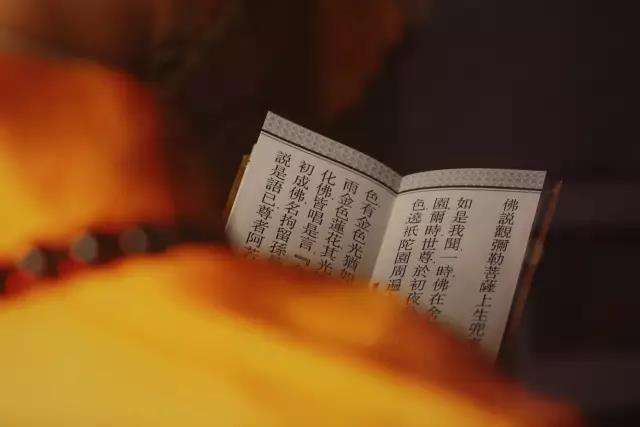 佛說觀彌勒菩薩上生兜
如是我聞一時佛在舍
園爾時世尊於初夜
色遶祇陀園周遍
色有金色光猶如
雨金色蓮化其光
化佛皆唱是言『
初成佛名拘留孫
說是語已尊者阿